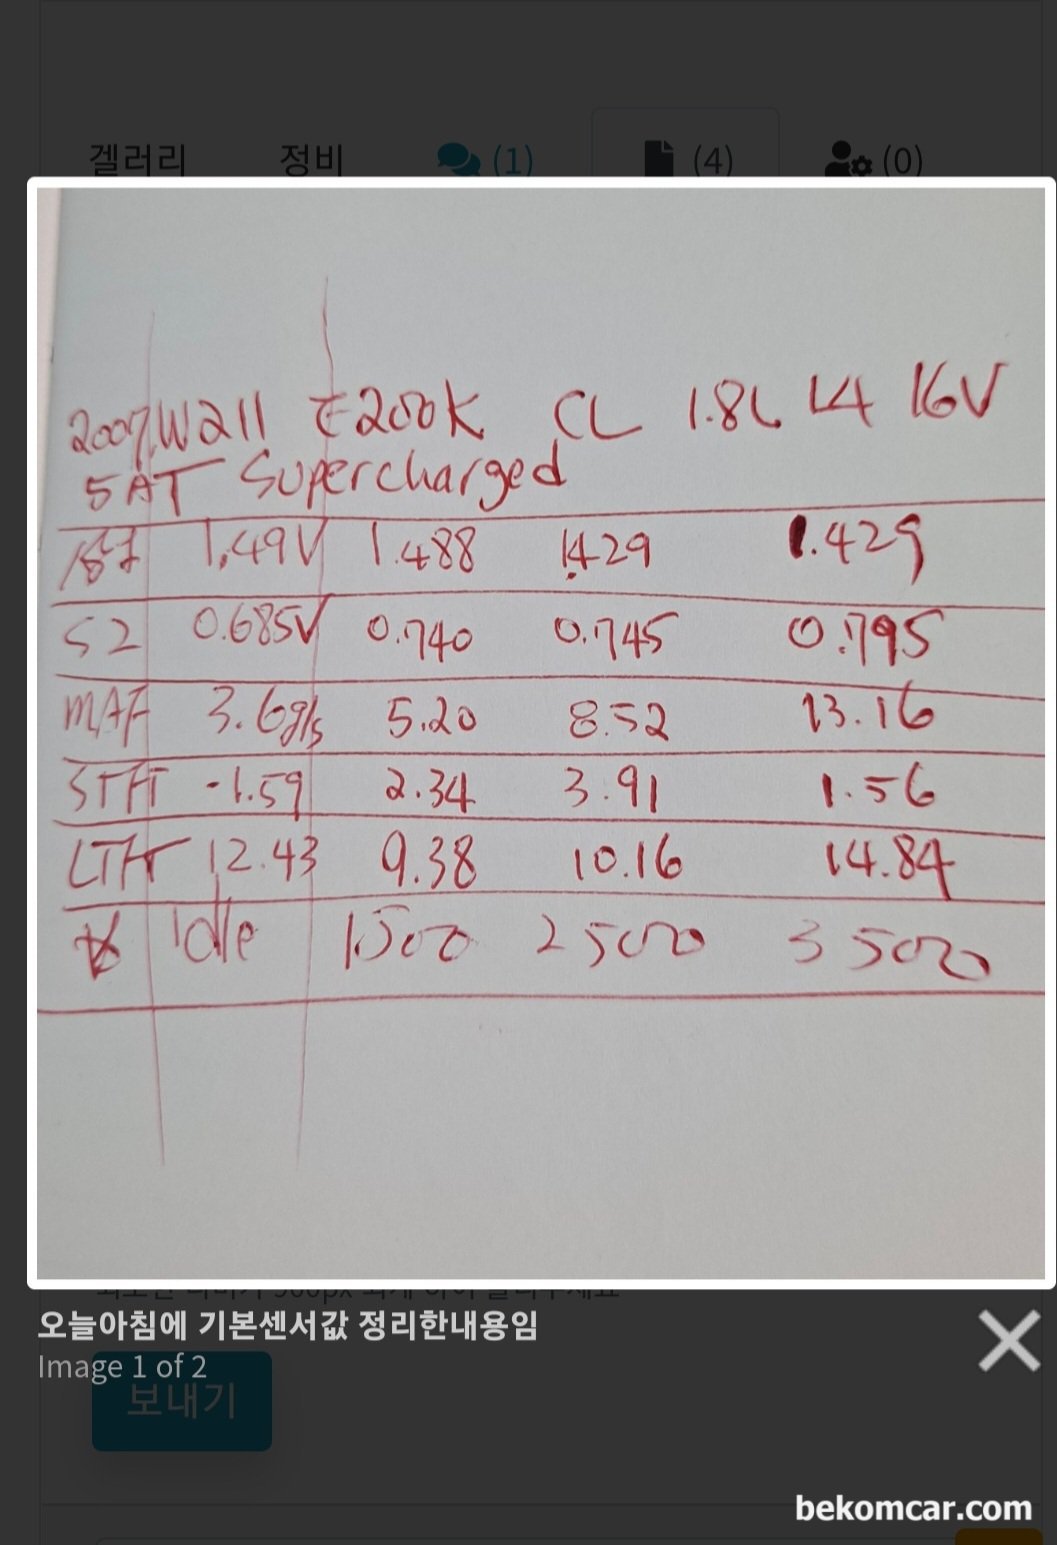 겔러리 정비 (1) (4) (0)
2007 W211 E200K CL 1.8L L4 16V
5AT Supercharged
1.49V 1.488 1.429 1.429
S2 0.685V 0.740 0.745 0.795
MAF 3.6g/s 5.20 8.52 13.16
STFT -1.59 2.34 3.91 1.56
LTFT 12.43 9.38 10.16 14.84
Idle 1500 2500 3500
오늘아침에 기본센서값 정리한내용임
Image 1 of 2
보내기
bekomcar.com